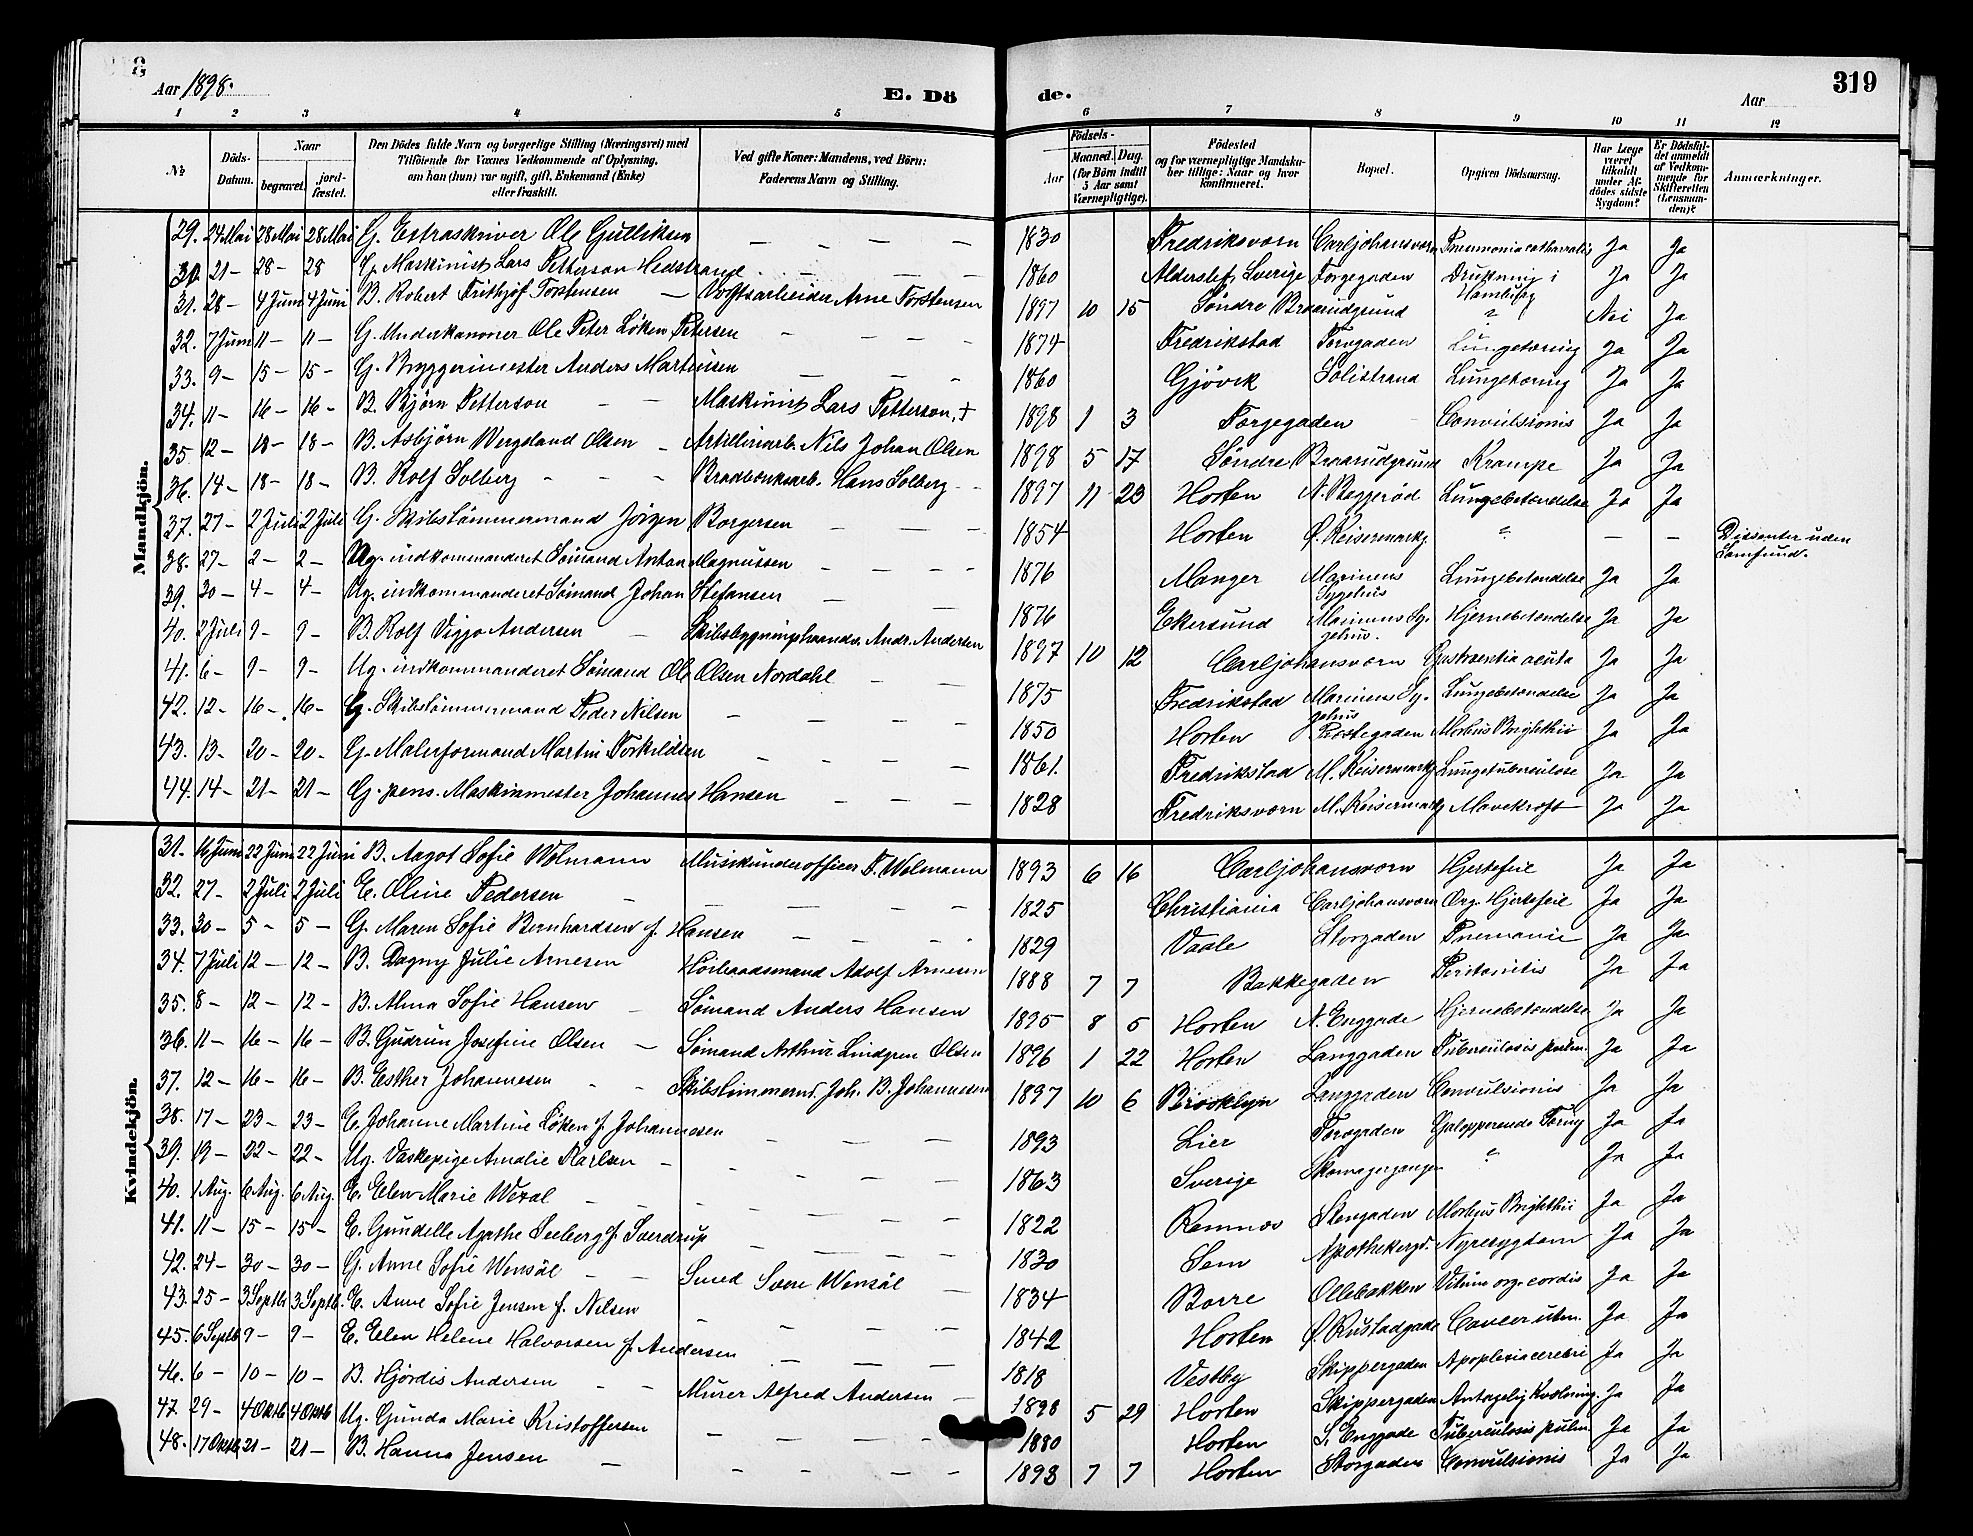 Aar 1898.
E. Dö
de.
Aar
319
1 2 3 4 5 6 7 8 9 10 11 12
№
Döds-Datum.
Naar
begravet.
jord-fæstet.
Den Dödes fulde Navn og borgerlige Stilling (Næringsvei) med
Tilföiende for Voxnes Vedkommende af Oplysning,
om han (hun) var ugift, gift, Enkemand (Enke)
eller fraskilt.
Ved gifte Koner: Mandens, ved Börn:
Faderens Navn og Stilling.
Födsels-
Aar
Maaned. Dag.
(for Börn indtil
5 Aar samt
Værnepligtige).
Födested
og for værnepligtige Mandska-
ber tillige: Naar og hvor
konfirmeret.
Bopæl.
Opgiven Dödsaarsag.
Har Læge
været
tilkaldt
under Af-
dödes sidste
Sygdom?
Er Dödsfal-
det anmeldt
af Vedkom-
mende for
Skifteretten
(Lensman-
den)?
Anmærkninger.
Mandkjön.
29. 24 Mai 28 Mai 28 Mai G. Extraskriver Ole Gulliksen — — — — 1830 Fredriksværn Carljohansværn Pneumonia catharralis Ja Ja
30. 21 — 28 — 28 G. Maskinist Lars Petterson Hedstrand — — — 1860 Sverige Torgegaden Drukning i Hamburg Ja Ja
31. 28 — 4 Juni 4 Juni B. Robert Frithjof Torstensen — Værftsarbeider Arne Torstensen 1897 10 15 Söndre Braarudgrund ? Nei Ja
32. 7 Juni 11 — 11 — G. Underkanoner Ole Peter Löken Petersen — — — — 1874 Fredrikstad Torvgaden Lungetæring Ja Ja
33. 9 — 15 — 15 — G. Bryggerimester Anders Martinsen — — — 1860 Gjövik Solistrand Lungetæring Ja Ja
34. 11 — 16 — 16 — B. Björn Petterson — — Maskinist Lars Petterson, † 1898 1 3 Torgegaden Convulsionis Ja Ja
35 12 — 18 — 18 — B. Asbjörn Wergeland Olsen — Artilleriarb. Nils Johan Olsen 1898 5 17 Söndre Braarudgrund Krampe Ja Ja
36. 14 — 18 — 18 — B. Rolf Solberg — — — Bradbænksarb. Hans Solberg — 1897 11 23 Horten N. Beggeröd Lungebetændelse Ja Ja
37. 27 — 2 Juli 2 Juli G. Skibstömmermand Jörgen Borgersen — — — 1854 Horten Ø. Keisermarkg ? — — Dissenter uden Samfund.
38. 27 — 2 — 2 — Ug. indkommanderet Sömand Anton Magnussen — — — — 1876 Manger Marinens Sygehus Lungebetændelse Ja Ja
39. 30 — 4 — 4 — Ug. indkommanderet Sömand Johan Stefansen — — 1876 Ekersund Marinens Sygehus. Hjernebetændelse Ja Ja
40. 2 Juli 9 — 9 — B. Rolf Viggo Andersen — Skibsbygningshaandv. Andr. Andersen 1897 10 12 Carljohansværn acuta Ja Ja
41. 6 — 9 — 9 — Ug. indkommanderet Sömand Ole Olsen Nordahl — — 1875 Fredrikstad Marinens Sygehus Lungebetændelse Ja Ja
42. 12 — 16 — 16 — G. Skibstömmermand Peder Nilsen — — — — 1850 Horten Morbus Brighthii Ja Ja
43. 13 — 20 — 20 — G. Malerformand Martin Torkildsen — — — — 1861. Fredrikstad M. Keisermarkg Lungetuberculose Ja Ja
44. 14 — 21 — 21 — G. pens. Maskinmester Johannes Hansen — — — 1828 Fredriksværn M. Keisermarkg Mavekræft Ja Ja
Kvindekjön.
31. 16 Juni 22 Juni 22 Juni B. Aagot Sofie Wolmann Musikunderofficer F. Wolmann 1893 6 16 Carljohansværn Hjertefeil Ja Ja
32. 27 — 2 Juli 2 Juli E. Oline Pedersen — — — — — 1825 Christiania Carljohansværn Org. Hjertefeil Ja Ja
33. 30 — 5 — 5 — G. Maren Sofie Bernhardsen f. Hansen — — — — 1829 Vaale Storgaden Pnemonie Ja Ja
34. 7 Juli 12 — 12 — B. Dagny Julie Arnesen Höibaadsmand Adolf Arnesen 1888 7 7 Bakkegaden Peritonitis Ja Ja
35. 8 — 12 — 12 — B. Alma Sofie Hansen — Sömand Anders Hansen 1895 8 5 Horten N. Enggade Hjernebetændelse Ja Ja
36. 11 — 16 — 16 — B. Gudrun Josefine Olsen — Sömand Arthur Lindgren Olsen 1896 1 22 Horten Langgaden Tuberculosis pulm. Ja Ja
37. 12 — 16 — 16 — B. Esther Johannesen — — Skibstömmermd. Joh. B. Johannesen 1897 10 6 Brooklyn Langgaden Convulsionis Ja Ja
38. 17 — 23 — 23 — E. Johanne Martine Löken f. Johannesen — — — — 1893 Lier Torvgaden Galopperende Tæring Ja Ja
39. 19 — 22 — 22 — Ug. Vaskepige Amalie Karlsen — — — — — 1863 Sverige Skomagergangen ? Ja Ja
40. 1 Aug. 6 Aug. 6 Aug. E. Elen Marie Wexal — — — — — 1822 Stengaden Morbus Brighthii Ja Ja
41. 11 — 15 — 15 — E. Gundelle Agathe Seeberg f. Sverdrup — — — — 1830 Sem Apothekergd. Nyresygdom Ja Ja
42. 24 — 30 — 30 — G. Anne Sofie Wensöl — — Smed Svæn Wensöl — 1834 Borre Ollebakken Vitium org. cordis Ja Ja
43. 25 — 3 Septb. 3 Septb. E. Anne Sofie Jensen f. Nilsen — — — — 1842 Horten Ø. Rustadgade Cancer uteri. Ja Ja
45. 6 Septb 9 — 9 — E. Elen Helene Halvorsen f. Andersen — — — 1818 Vestby Skippergaden Apoplexia cerebri Ja Ja
46. 6 — 10 — 10 — B. Hjördis Andersen — — Murer Alfred Andersen — 1898 5 29 Horten Skippergaden Antagelig Kvælning. Ja Ja
47 29 — 4 Oktb 4 Oktb Ug. Gunda Marie Kristoffersen — — — — 1880 Horten S. Enggade Tuberculosis pulm. Ja Ja
48. 17 Oktb. 21 — 21 — B. Hanna Jensen — — — — — 1898 7 7 Horten Storgaden Convulsionis Ja Ja